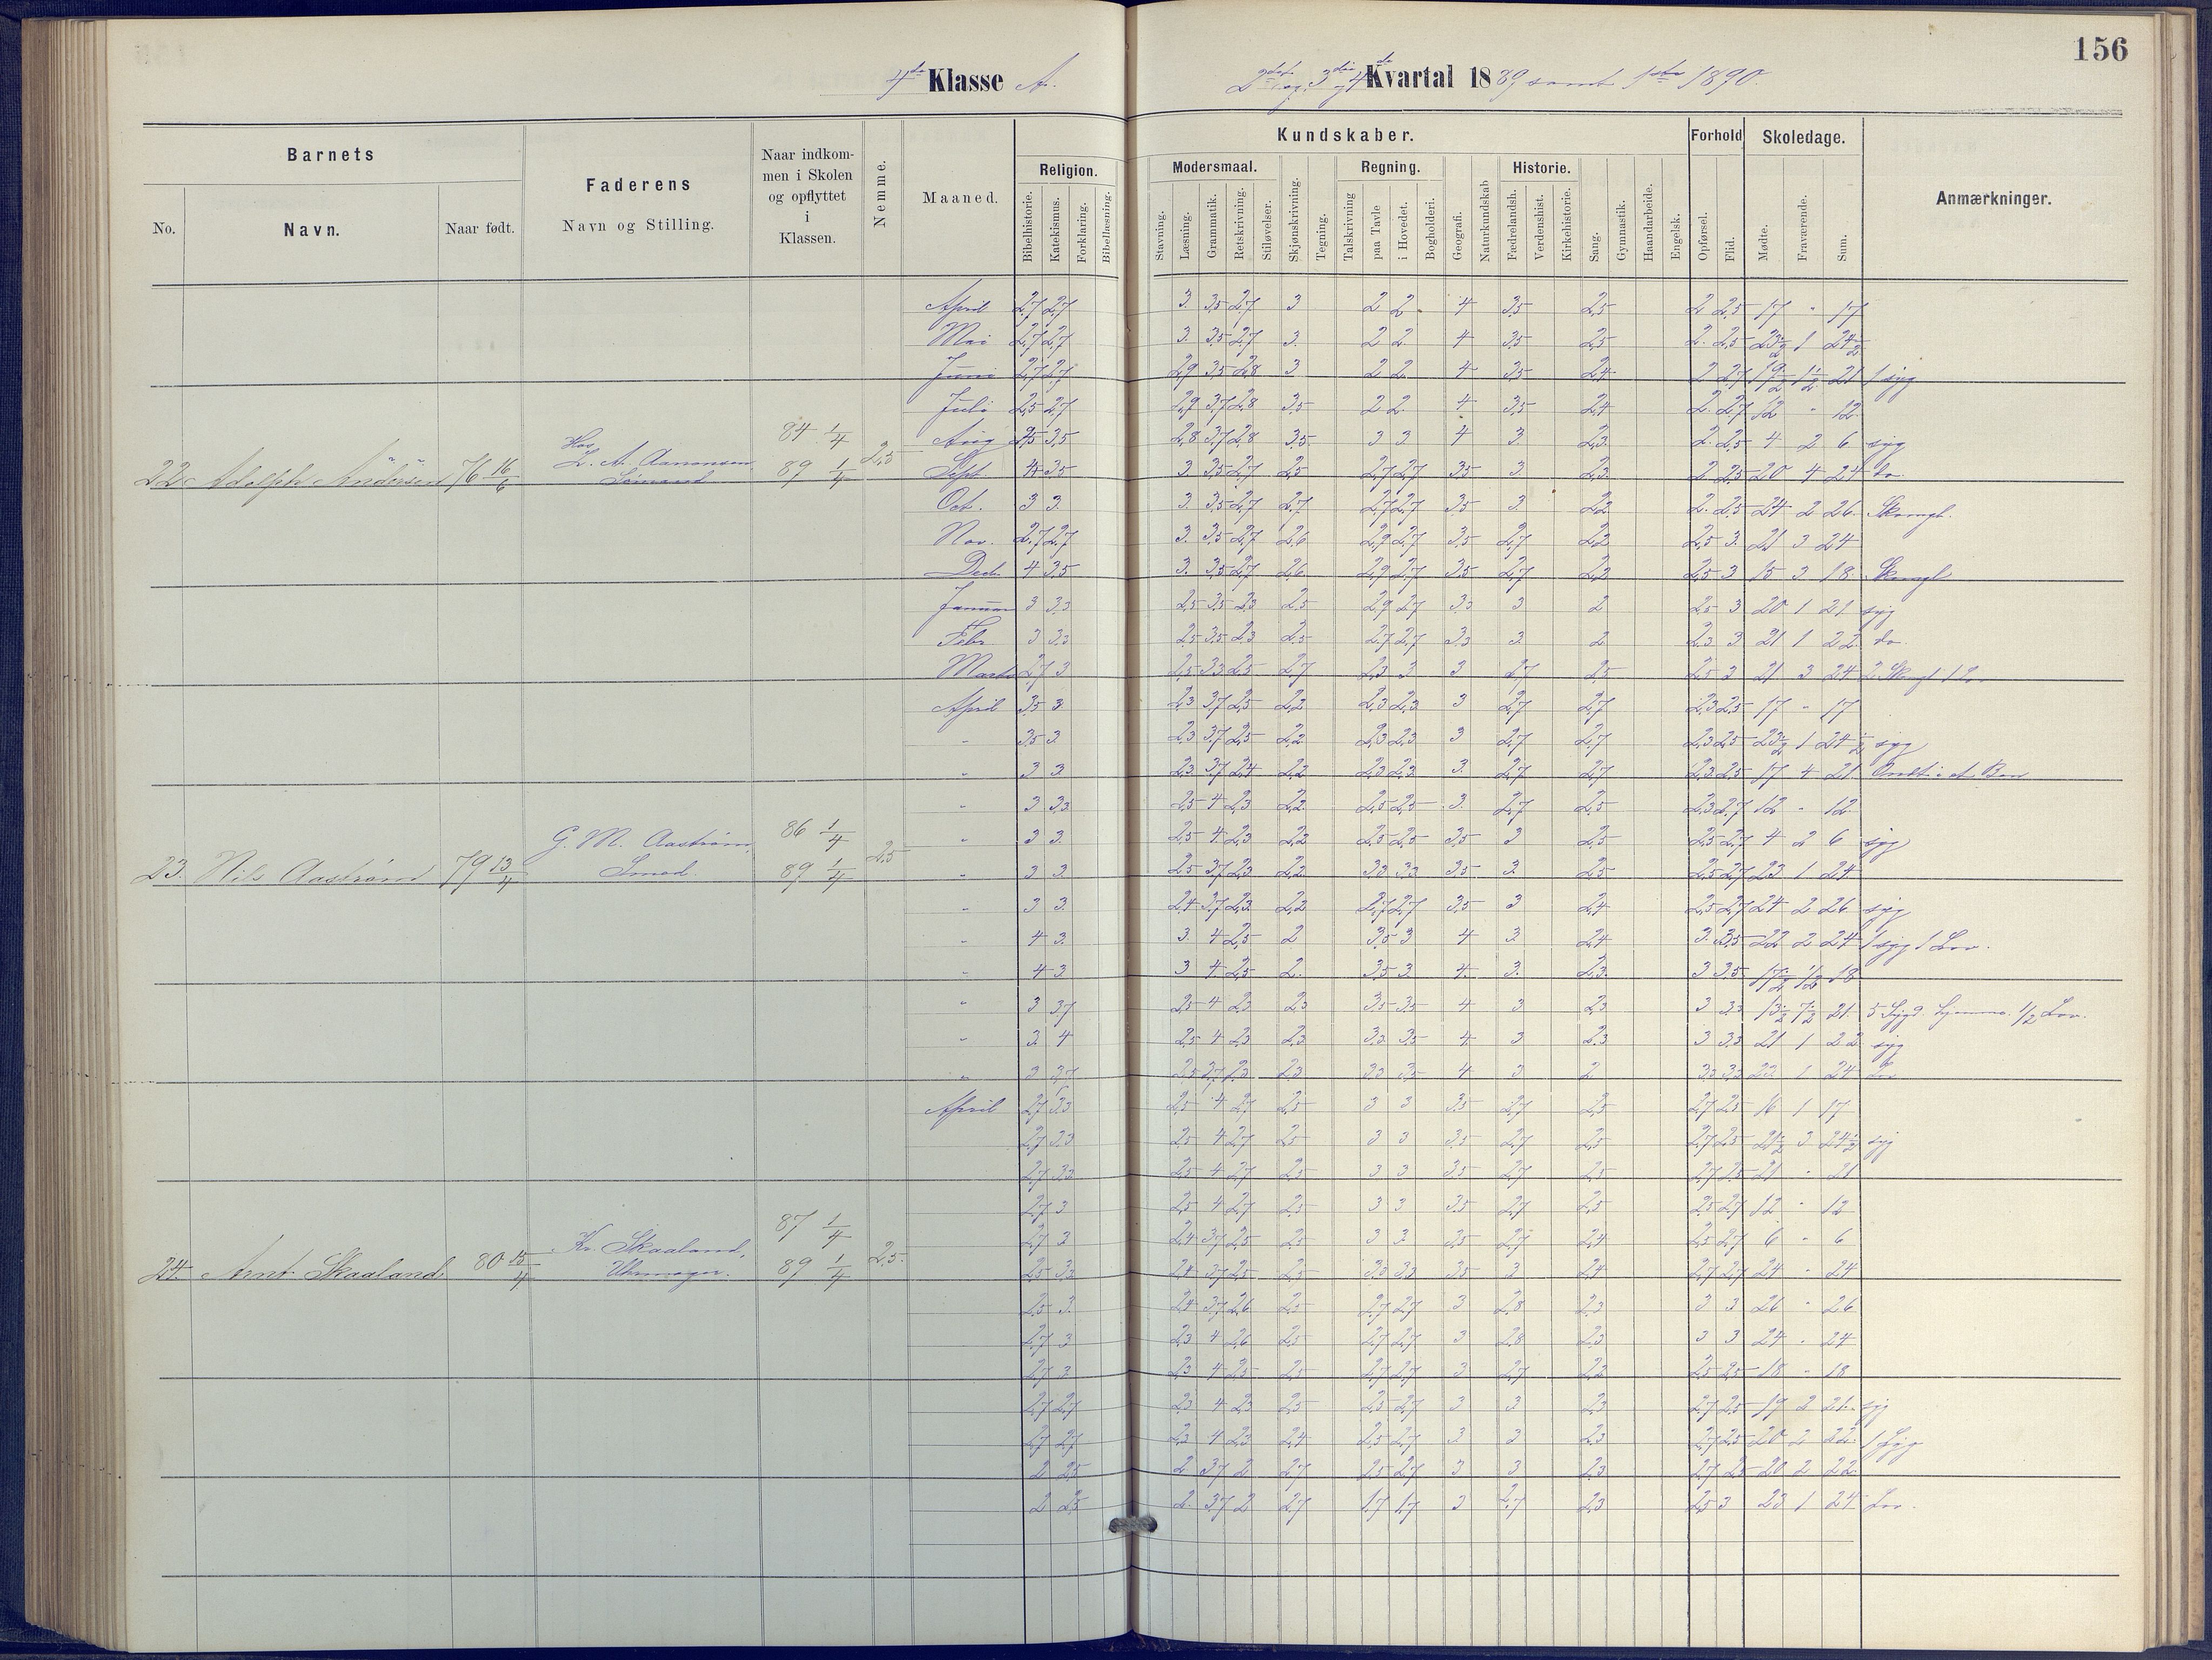 156
4de Klasse A.
2det og 3die og 4de Kvartal 1889 samt 1ste 1890.
Barnets
Faderens
Naar indkommen i Skolen og opflyttet i Klassen.
Nemme.
Maaned.
Kundskaber.
Forhold
Skoledage.
Anmærkninger.
No.
Navn.
Naar født.
Navn og Stilling.
Religion.
Modersmaal.
Regning.
Historie.
Bibelhistorie.
Katekismus.
Forklaring.
Bibellæsning.
Stavning.
Læsning.
Grammatik.
Retskrivning.
Stiløvelser.
Skjønskrivning.
Tegning.
Talskrivning
paa Tavle
i Hovedet.
Bogholderi.
Geografi.
Naturkundskab
Fædrelandsh.
Verdenshist.
Kirkehistorie.
Sang.
Gymnastik.
Haandarbeide.
Engelsk.
Opførsel.
Flid.
Mødte.
Fraværende.
Sum.
April 2,7 2,7 3. 3,5 2,7 3 2 2 4 3,5 2,5 2 2,5 17 " 17
Mai 2,7 2,7 3. 3,5 2,7 3. 2 2 4 3,5 2,5 2. 2,5 23½ 1 24½
Juni 2,7 2,7 2,9 3,5 2,8 3 2 2 4 3,5 2,4 2 2,7 19½ 1½ 21 1 syg
Juli 2,5 2,7 2,9 3,7 2,8 3,5 2 2 4 3,5 2,4 2. 2,7 12 " 12
22 Adolph Andersen 76 16/6 Hos L. A. Aanonsen Sømand 84 1/4 89 1/4 2,5
Aug 3,5 2,8 3,7 2,8 3,5 3 3 4 3 2,3 2. 2,5 4 2 6 syg
Sept. 4 3,5 3 3,5 2,7 2,5 2,7 2,7 3,5 3 2,3 2 2,5 20 4 24 do.
Oct. 3 3. 3. 3,5 2,7 2,7 2,7 2,7 3,5 3 2,2 2. 2,5 24 2 26 Skomgl.
Nov. 2,7 2,7 3. 3,5 2,7 2,6 2,9 2,7 3,5 2,7 2,2 2,5 3. 21 3 24
Dec. 4 3,5 3. 3,5 2,7 2,6 2,9 2,7 3,5 2,7 2,2 2,5 3 15 3 18 Skomgl
Januar 3 3,3 2,5 3,5 2,3 2,5 2,9 2,7 3,3 3 2 2,5 3 20 1 21 syg
Febr 3 3,3 2,5 3,5 2,3 2,5 2,7 2,7 3,3 3 2 2,3 3 21 1 22 do
Marts 2,7 3 2,5 3,3 2,5 2,7 2,3 3 3 2,7 2,5 2,5 3 21 3 24 2 Skomgl 1 Lov
April 3,5 3 2,3 3,7 2,5 2,2 2,3 2,3 3 2,7 2,7 2,3 2,5 17 " 17
" 3,5 3. 2,3 3,7 2,5 2,2 2,3 2,3 3 2,7 2,7 2,3 2,5 23½ 1 24½ syg
" 3 3 2,3 3,7 2,4 2,2 2,3 2,3 3. 2,7 2,7 2,3 2,5 17 4 21 Ondt i et Ben
" 3 3,3 2,5 4 2,3 2,2 2,5 2,5 3. 2,7 2,5 2,3 2,7 12 " 12
23. Nils Aastrøm 79 13/4 G. M. Aastrøm, Smed. 86 1/4 89 1/4 2,5
" 3 3. 2,5 4 2,3 2,2 2,5 2,5 3,5 3 2,5 2,5 2,7 4 2 6 syg
" 3 3. 2,5 3,7 2,3 2,2 3,3 3,3 3,5 3 2,5 2,5 2,7 23 1 24
" 3 3. 2,4 3,7 2,3 2,2 2,7 2,7 3,5 3 2,4 2,5 2,7 24 2 26 syg
" 4 3. 3. 4 2,5 2 3,5 3 4 3 2,4 3. 3,5 22 2 24 1 syg 1 Lov.
" 4 3 3 4 2,5 2. 3,5 3. 4. 3. 2,3. 3 3,5 17½ ½ 18
" 3 3,7 2,5 4 2,3 2,3 3,5 3,5 4 3 2,3 3 3,3 13½ 7½ 21 5 Sygd. hjemme. 1/2 Lov.
" 3. 4 2,5 4 2,3 2,3 3,3 3,5 4 3 2,3 3 3,3 21 1 22 syg
" 3 3,7 2,5 3,7 2,3 2,3 3,3 3,5 4 3 2 3,3 3,3 23 1 24 Lov
April 2,7 3,3 2,5 4 2,7 2,5 3 3 3,5 2,7 2,5 2,7 2,5 16 1 17
2,7 3,3 2,5 4 2,7 2,5 3 3 3,5 2,7 2,5 2,7 2,5 21½ 3 24½ syg
2,7 3,3 2,5 4 2,7 2,5 3 3 3,5 2,7 2,5 2,7 2,5 21 " 21
2,7 3 2,5 4 2,7 2,5 3 3 3,5 2,7 2,5 2,5 2,7 12 " 12
24. Arnt Skaaland 80 15/4 Kr. Skaaland, Uhrmager. 87 1/4 89 1/4 2,5
2,7 3 2,4 3,7 2,5 2,5 3 3 3,5 2,7 2,4 2,5 2,7 6 " 6
2,5 3,3 2,4 3,7 2,5 2,5 3,3 3,3 3,5 3 2,4 2,7 2,7 24 " 24
2,5 3. 2,4 3,7 2,6 2,5 2,7 2,7 3 2,8 2,3 3 3 26 " 26
2,7 3 2,3 4 2,6 2,5 2,7 2,7 3 2,8 2,3 3 3 24 " 24
2,7 3 2,3 4 2,5 2,5 2,7 2,7 3 2,7 2,2 2,5 2,5 18 " 18
2,7 2,7 2,3 4 2,3 2,5 2,5 2,7 3 3 2,3 2,7 2,5 19 2 21 syg
2,7 2,7 2,2 4 2,3 2,4 2,5 2,7 3 3 2,3 2,7 2,5 20 2 22 1 Syg
2 2,5 2 3,7 2 2,7 2,5 2,7 3 3 2,3 2,7 2,5 20 2 22
2 2,5 2. 3,7 2 2,7 1,7 1,7 3 2,7 2,3 2,5 3 23 1 24 Lov.